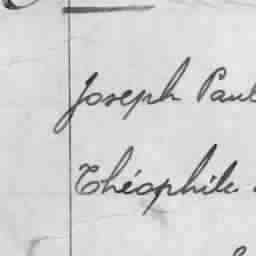 Joseph Paul
Théophile